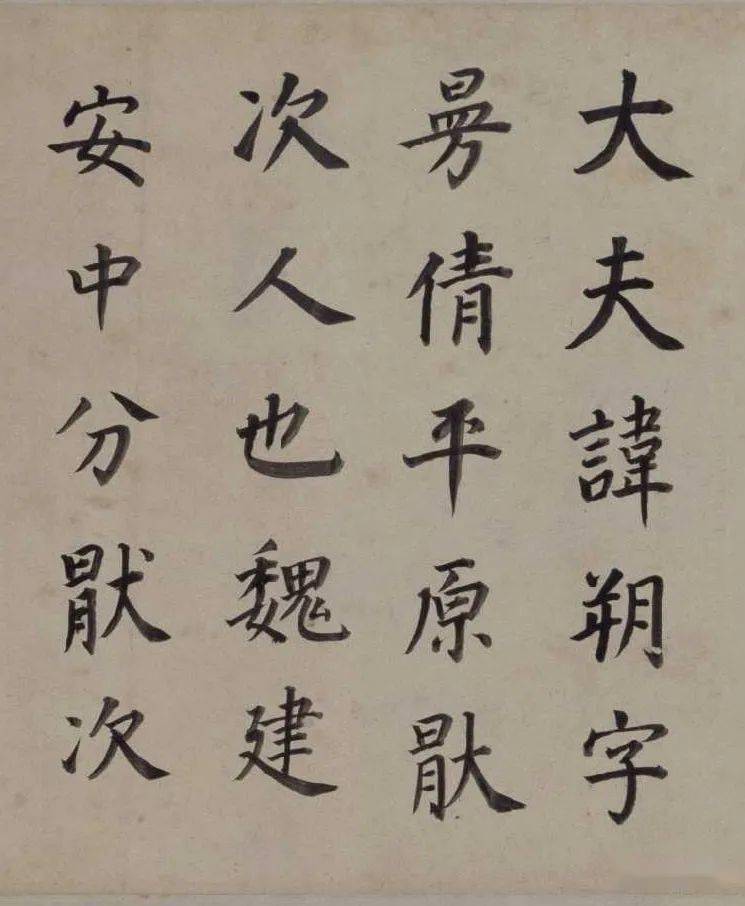 大夫諱朔字
曼倩平原猒
次人也魏建
安中分猒次